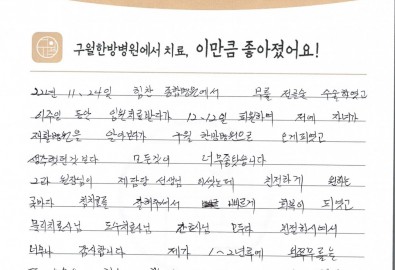 구월한방병원에서 치료, 이만큼 좋아졌어요!
22년 11.24일 힘찬 종합병원에서 무릎 전골술 수술하였고
이주일 동안 입원치료받다가 12.12일 퇴원하며 저에 자녀가
재활병원을 알아보다가 구월 한방병원으로 오게되였고
생각보다 모든것이 너무좋았습니다
그라 원장님이 제담당 선생님 이셨는데 친절하게 원하는
곳마다 침치료를 해주셔서 빠르게 회복이 되였고
물리치료사님 도수치료사님 간호사님 모두다 친절하시에서
너무나 감사합니다 제가 1~2년후에 왼쪽무릎는